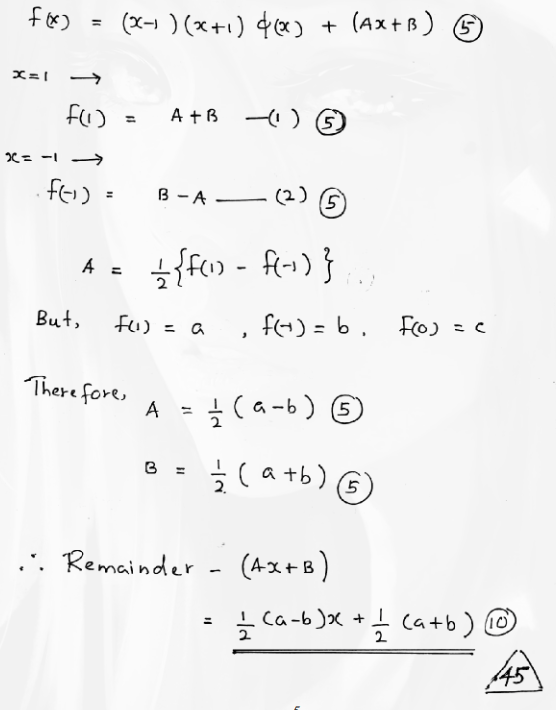 f(x) = (x-1)(x+1) ϕ(x) + (Ax+B) ⑤
x=1 →
f(1) = A+B —(1) ⑤
x= -1 →
f(-1) = B-A —— (2) ⑤
A = 1/2 {f(1) - f(-1)}
But, f(1) = a , f(-1) = b , f(0) = c
Therefore, A = 1/2 (a-b) ⑤
B = 1/2 (a+b) ⑤
∴ Remainder - (Ax+B)
= 1/2 (a-b)x + 1/2 (a+b) ⑩
45